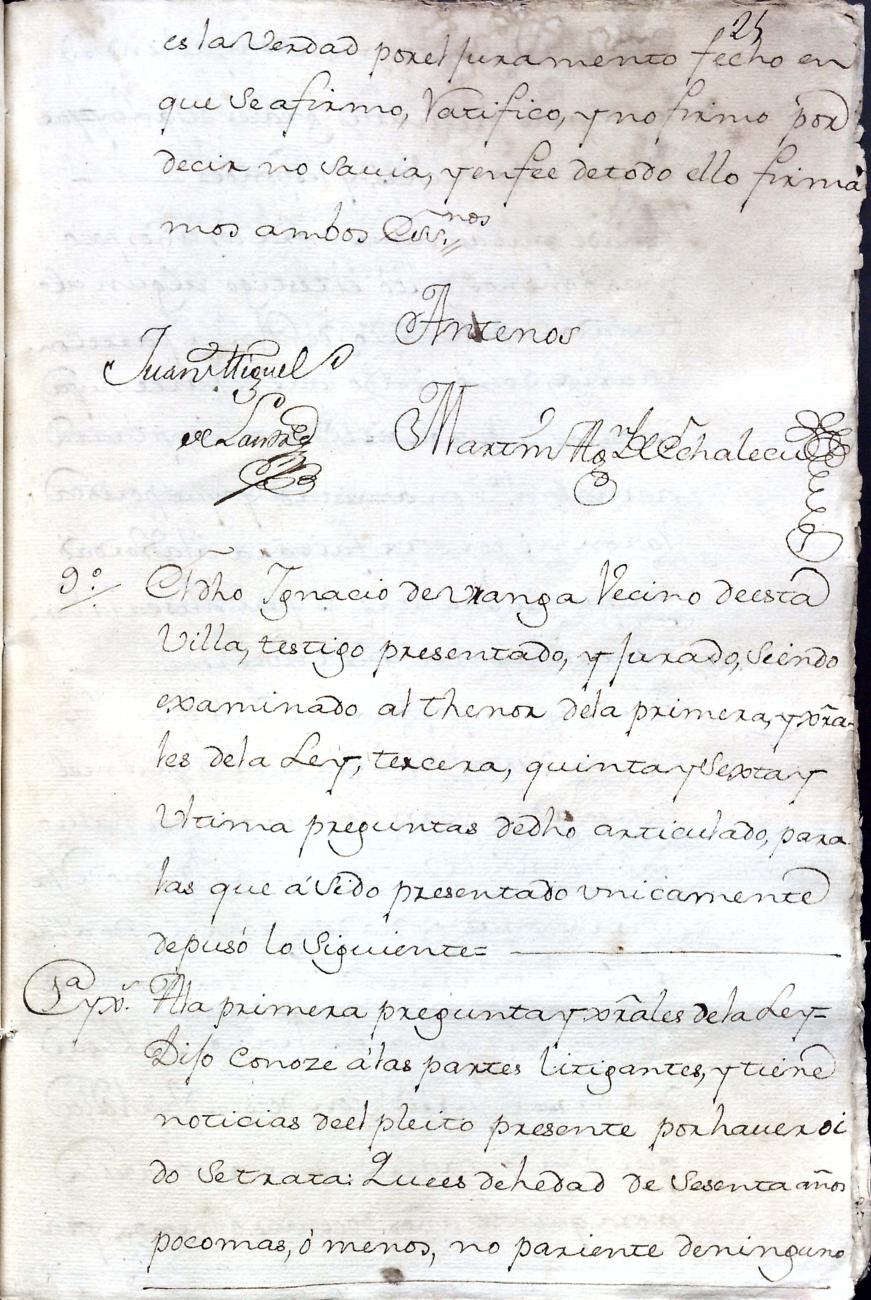 25
es la Verdad por el Juramento fecho en
que Se afirmo, Ratifico, y no firmo por
decir no Savia, y en fee de todo ello firma
mos ambos Essnos
Antenos
Juan Miguel
de
Martin de Echalecu
9.º El dho Ignacio de Uranga Vecino de esta
Villa, testigo presentado, y Jurado, Seindo
examinado al thenor de la primera, y xra-
les de la Ley, tercera, quinta y Sexta y
Ultima preguntas de dho articulado, para
las que á Sido presentado unicamente
depusó lo Siguiente=
1ª y xs. A la primera pregunta y xrales de la Ley=
Dijo Conoze á las partes litigantes, y tiene
noticias de el pleito presente por haver oi
do Se trata: Que es de hedad de Sesenta años
poco mas, ó menos, no pariente de ninguno